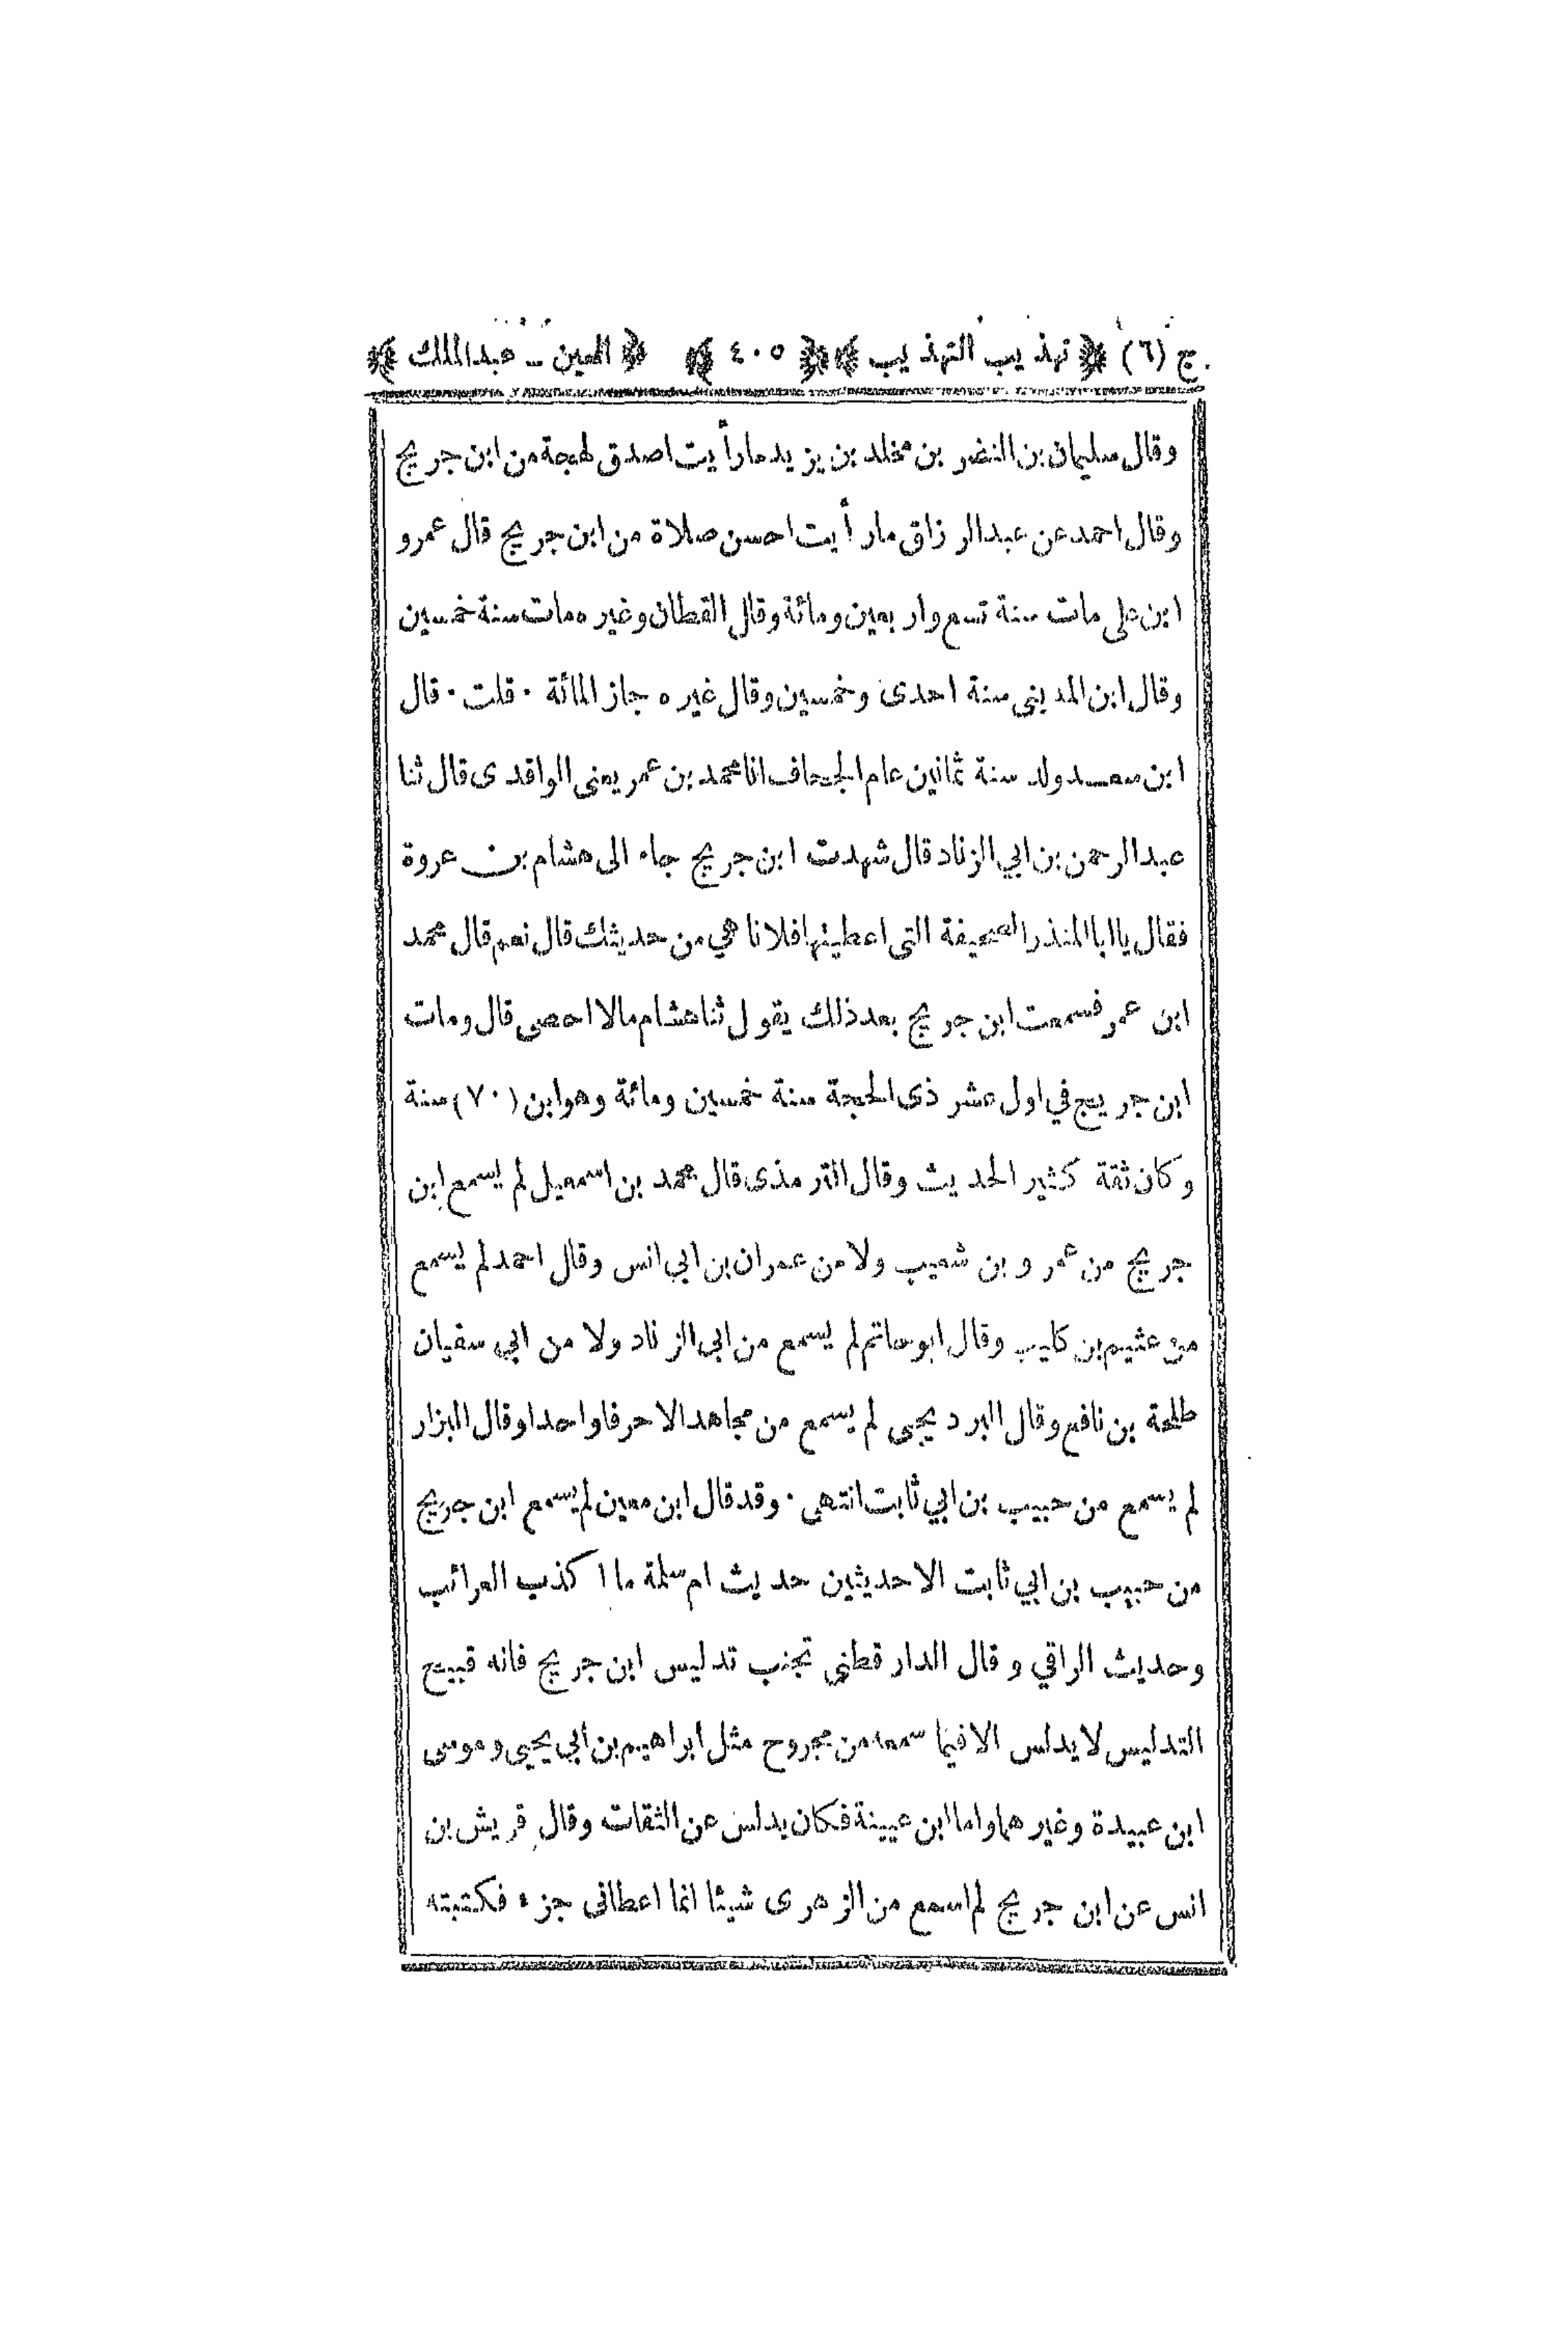 ج (٦) ﴿ تهذيب التهذيب ﴾ ﴿ ٤٠٥ ﴾ ﴿ العين – عبدالملك ﴾
وقال سليمان بن النضر بن مخلد بن يزيد مارأيت اصدق لهجة من ابن جريج
وقال احمد عن عبدالرزاق مارأيت احسن صلاة من ابن جريج قال عمرو
ابن على مات سنة تسع واربعين ومائة وقال القطان وغيره مات سنة خمسين
وقال ابن المديني سنة احدى وخمسين وقال غيره جاز المائة ٠ قلت ٠ قال
ابن سعد ولد سنة ثمانين عام الجحاف انا محمد بن عمر يعنى الواقدى قال ثنا
عبدالرحمن بن ابي الزناد قال شهدت ابن جريج جاء الى هشام بن عروة
فقال يا ابا المنذر الصحيفة التى اعطيتها فلانا هي من حديثك قال نعم قال محمد
ابن عمر فسمعت ابن جريج بعد ذلك يقول ثنا هشام مالا احصى قال ومات
ابن جريج في اول عشر ذى الحجة سنة خمسين ومائة وهو ابن (٧٠) سنة
وكان ثقة كثير الحديث وقال الترمذى قال محمد بن اسمعيل لم يسمع ابن
جريج من عمرو بن شعيب ولا من عمران بن ابي انس وقال احمد لم يسمع
من عثيم بن كليب وقال ابو حاتم لم يسمع من ابي الزناد ولا من ابي سفيان
طلحة بن نافع وقال البرديجى لم يسمع من مجاهد الا حرفا واحدا وقال البزار
لم يسمع من حبيب بن ابي ثابت انتهى ٠ وقد قال ابن معين لم يسمع ابن جريج
من حبيب بن ابي ثابت الا حديثين حديث ام سلمة ما اكذب الغرائب
وحديث الراقي وقال الدارقطنى تجنب تدليس ابن جريج فانه قبيح
التدليس لا يدلس الا فيما سمعه من مجروح مثل ابراهيم بن ابي يحيى وموسى
ابن عبيدة وغيرهما واما ابن عيينة فكان يدلس عن الثقات وقال قريش بن
انس عن ابن جريج لم اسمع من الزهرى شيئا انما اعطانى جزء فكتبته